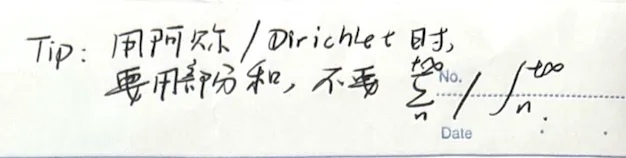 Tip: 用阿尔 / Dirichlet 时,
要用部分和, 不要 $\sum_{n}^{+\infty}$ / $\int_{n}^{+\infty}$.
No.
Date